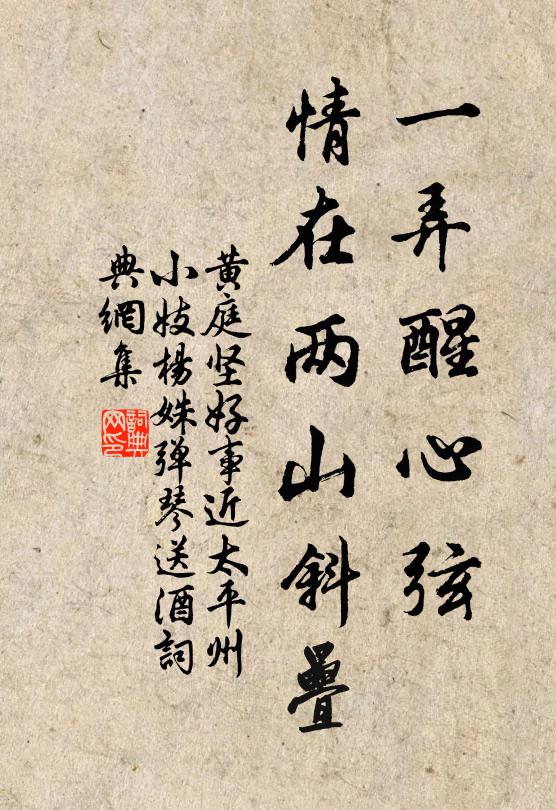 一弄醒心弦
情在两山斜疊
黄庭坚好事近太平州
小妓楊姝弹琴送酒詞
典網集
詞典
网印